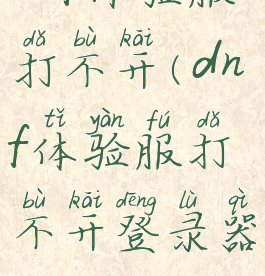 dǎ bù kāi
打不开(dn
tǐ yàn fú dǎ
f体验服打
bù kāi dēng lù qì
不开登录器